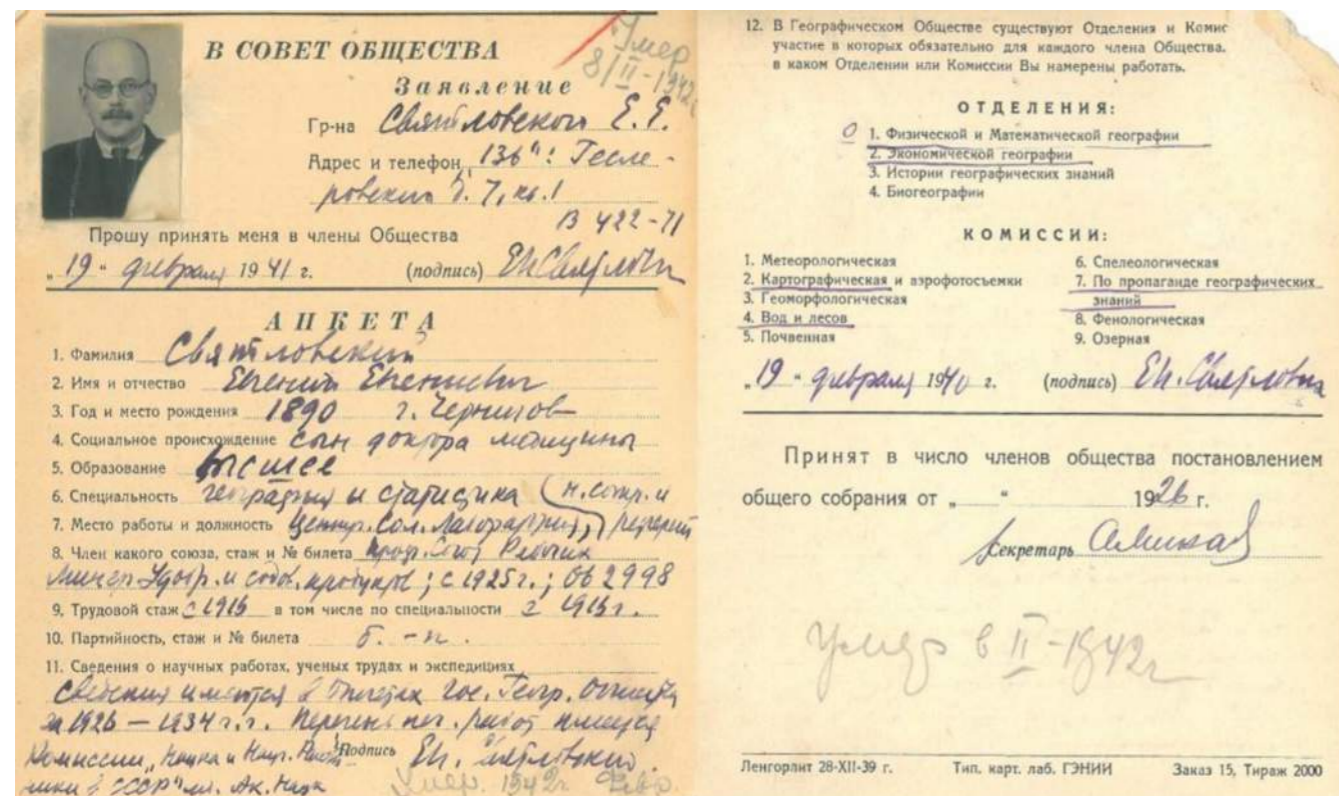 В СОВЕТ ОБЩЕСТВА
Умер
8/II-1942
Заявление
Гр-на Святловского Е. Е.
Адрес и телефон 136": Гесле-
ровский 7, кв. 1
В 422-71
Прошу принять меня в члены Общества
„19" февраля 1941 г. (подпись) Ев. Святловский
АНКЕТА
1. Фамилия Святловский
2. Имя и отчество Евгений Евгеньевич
3. Год и место рождения 1890 г. Чернигов
4. Социальное происхождение сын доктора медицины
5. Образование высшее
6. Специальность география и статистика (н. сотр. и
7. Место работы и должность Центр. Сол. Лаборатория,) референт
8. Член какого союза, стаж и № билета Проф. Союз Рабочих
Минер. Удобр. и содов. продуктов; с 1925 г.; 062998
9. Трудовой стаж с 1913 в том числе по специальности с 1913 г.
10. Партийность, стаж и № билета б. - п.
11. Сведения о научных работах, ученых трудах и экспедициях
Сведения имеются в Гос. Геогр. Общества
за 1926 — 1934 г.г. Перечень печ. работ имеется
Комиссии „Наука и Науч. Работ- Подпись Ев. Святловский.
ники в СССР" Ак. Наук
Умер. 1942 г. Февр.
12. В Географическом Обществе существуют Отделения и Комис
участие в которых обязательно для каждого члена Общества.
в каком Отделении или Комиссии Вы намерены работать.
ОТДЕЛЕНИЯ:
1. Физической и Математической географии
2. Экономической географии
3. Истории географических знаний
4. Биогеографии
КОМИССИИ:
1. Метеорологическая
2. Картографическая и аэрофотосъемки
3. Геоморфологическая
4. Вод и лесов
5. Почвенная
6. Спелеологическая
7. По пропаганде географических
знаний
8. Фенологическая
9. Озерная
„19" февраля 1940 г. (подпись) Ев. Святловский
Принят в число членов общества постановлением
общего собрания от „ " 1926 г.
Секретарь
Умер в II-1942 г
Ленгорлит 28-XII-39 г. Тип. карт. лаб. ГЭНИИ Заказ 15, Тираж 2000